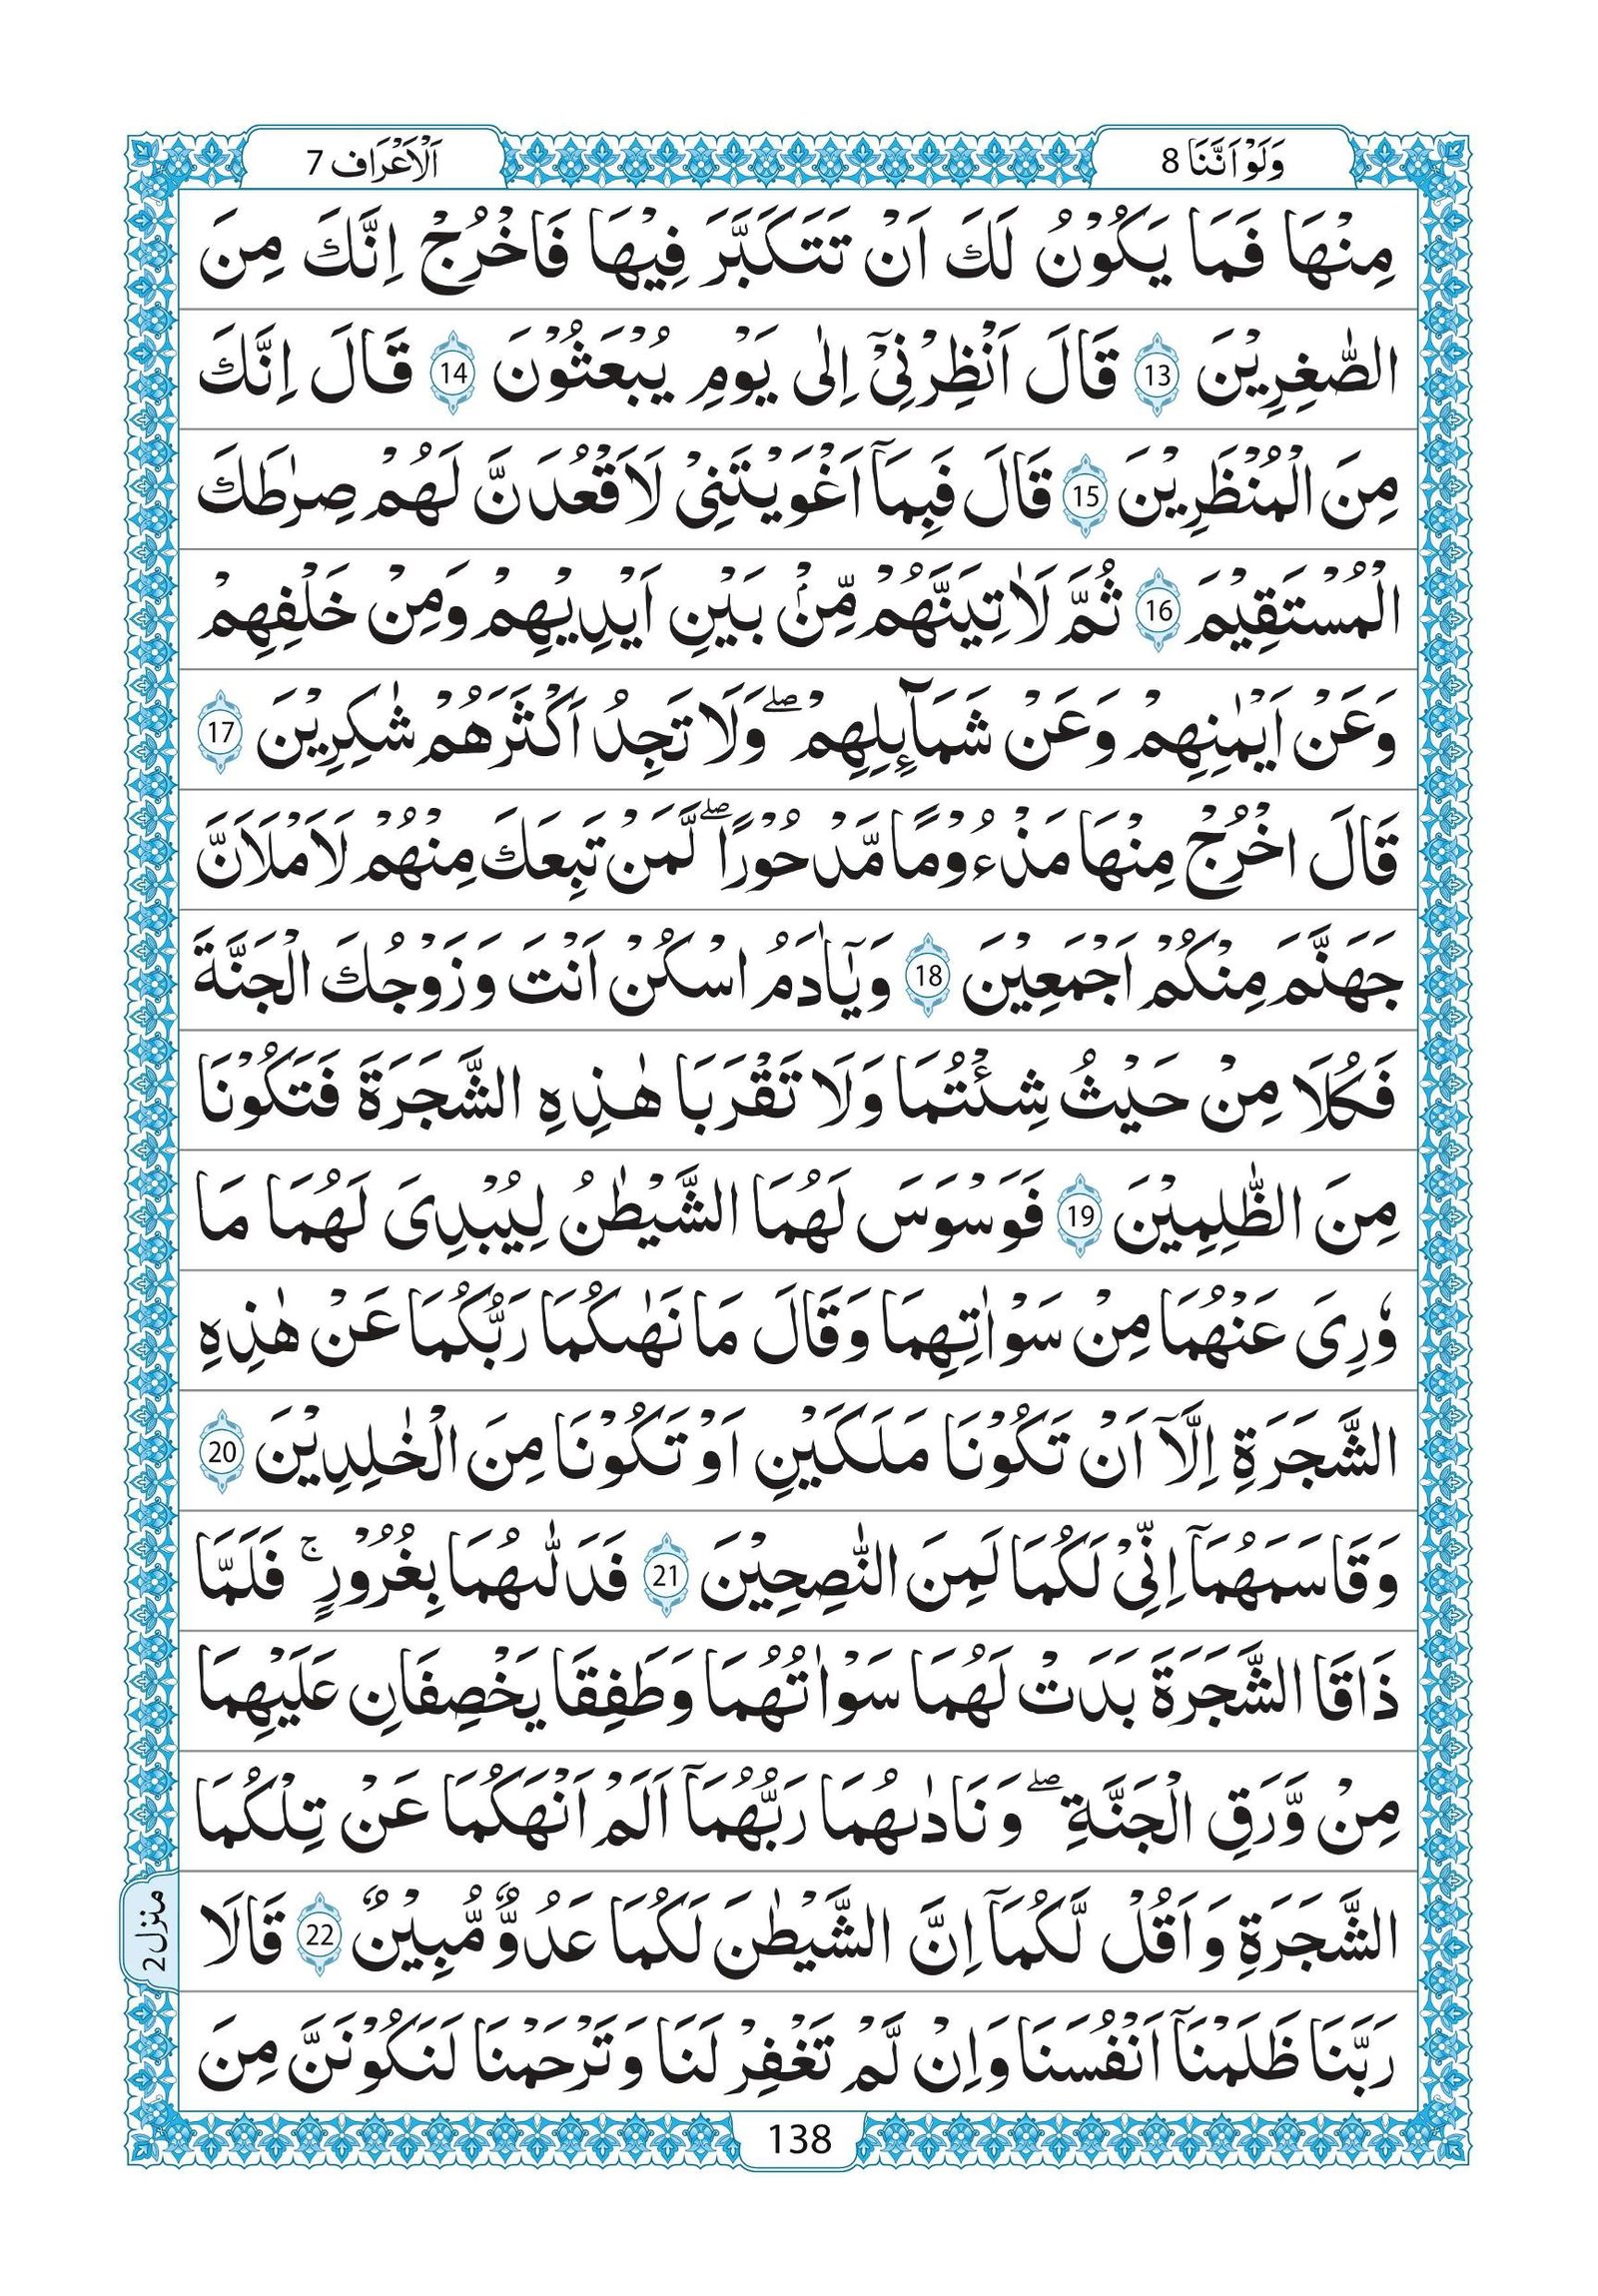 وَلَوْ اَنَّنَا 8
اَلْاَعْرَاف 7
مِنْهَا فَمَا يَكُوْنُ لَكَ اَنْ تَتَكَبَّرَ فِيْهَا فَاخْرُجْ اِنَّكَ مِنَ
الصّٰغِرِيْنَ 13 قَالَ اَنْظِرْنِيْۤ اِلٰى يَوْمِ يُبْعَثُوْنَ 14 قَالَ اِنَّكَ
مِنَ الْمُنْظَرِيْنَ 15 قَالَ فَبِمَاۤ اَغْوَيْتَنِيْ لَاَقْعُدَنَّ لَهُمْ صِرٰطَكَ
الْمُسْتَقِيْمَ 16 ثُمَّ لَاٰتِيَنَّهُمْ مِّنْۢ بَيْنِ اَيْدِيْهِمْ وَمِنْ خَلْفِهِمْ
وَعَنْ اَيْمٰنِهِمْ وَعَنْ شَمَآىِٕلِهِمْ ۖ وَلَا تَجِدُ اَكْثَرَهُمْ شٰكِرِيْنَ 17
قَالَ اخْرُجْ مِنْهَا مَذْءُوْمًا مَّدْحُوْرًا ۖ لَّمَنْ تَبِعَكَ مِنْهُمْ لَاَمْلَاَنَّ
جَهَنَّمَ مِنْكُمْ اَجْمَعِيْنَ 18 وَيٰۤاٰدَمُ اسْكُنْ اَنْتَ وَزَوْجُكَ الْجَنَّةَ
فَكُلَا مِنْ حَيْثُ شِئْتُمَا وَلَا تَقْرَبَا هٰذِهِ الشَّجَرَةَ فَتَكُوْنَا
مِنَ الظّٰلِمِيْنَ 19 فَوَسْوَسَ لَهُمَا الشَّيْطٰنُ لِيُبْدِيَ لَهُمَا مَا
وٗرِيَ عَنْهُمَا مِنْ سَوْاٰتِهِمَا وَقَالَ مَا نَهٰىكُمَا رَبُّكُمَا عَنْ هٰذِهِ
الشَّجَرَةِ اِلَّاۤ اَنْ تَكُوْنَا مَلَكَيْنِ اَوْ تَكُوْنَا مِنَ الْخٰلِدِيْنَ 20
وَقَاسَمَهُمَاۤ اِنِّيْ لَكُمَا لَمِنَ النّٰصِحِيْنَ 21 فَدَلّٰىهُمَا بِغُرُوْرٍ ۚ فَلَمَّا
ذَاقَا الشَّجَرَةَ بَدَتْ لَهُمَا سَوْاٰتُهُمَا وَطَفِقَا يَخْصِفَانِ عَلَيْهِمَا
مِنْ وَّرَقِ الْجَنَّةِ ۖ وَنَادٰىهُمَا رَبُّهُمَاۤ اَلَمْ اَنْهَكُمَا عَنْ تِلْكُمَا
الشَّجَرَةِ وَاَقُلْ لَّكُمَاۤ اِنَّ الشَّيْطٰنَ لَكُمَا عَدُوٌّ مُّبِيْنٌ 22 قَالَا
رَبَّنَا ظَلَمْنَاۤ اَنْفُسَنَا وَاِنْ لَّمْ تَغْفِرْ لَنَا وَتَرْحَمْنَا لَنَكُوْنَنَّ مِنَ
منزل 2
138